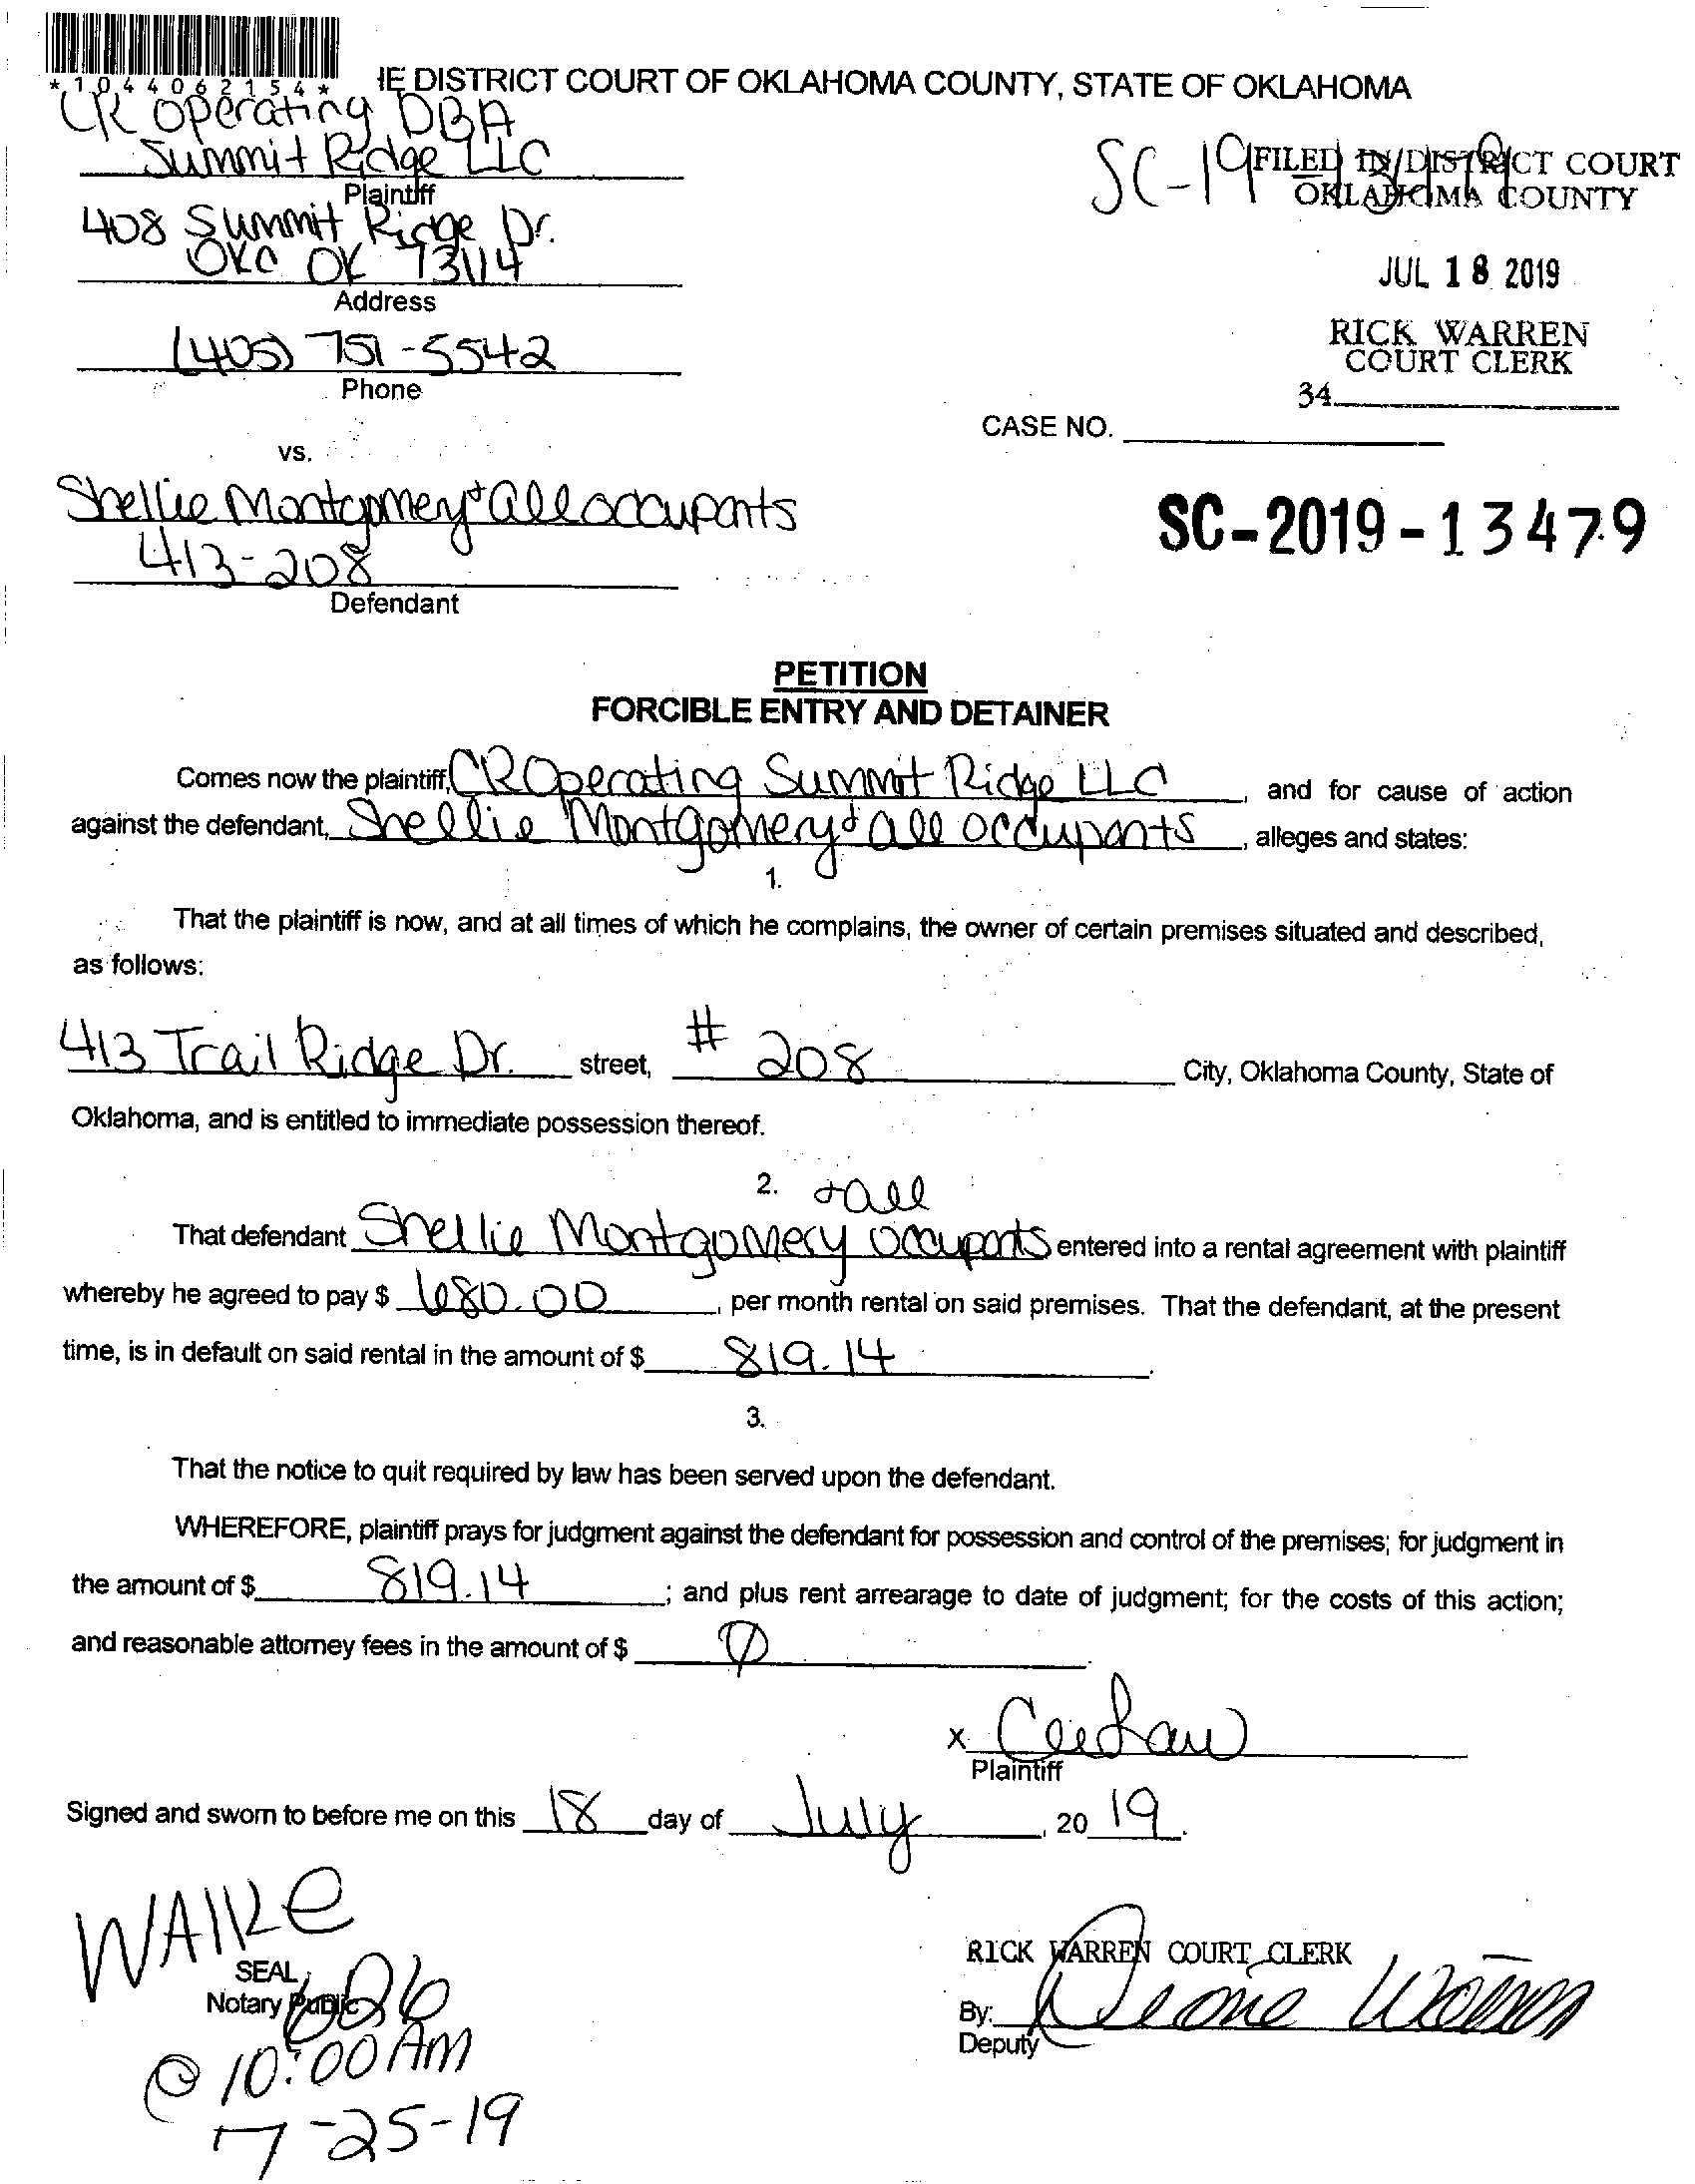 *1044062154*
IE DISTRICT COURT OF OKLAHOMA COUNTY, STATE OF OKLAHOMA
CR Operating DBA
Summit Ridge LLC
Plaintiff
SC-19-13479
FILED IN DISTRICT COURT
OKLAHOMA COUNTY
408 Summit Ridge Dr.
OKC OK 73114
Address
JUL 18 2019
(405) 751-5542
Phone
RICK WARREN
COURT CLERK
34
CASE NO.
vs.
Shellie Montgomery & all occupants
413-208
Defendant
SC-2019-13479
PETITION
FORCIBLE ENTRY AND DETAINER
Comes now the plaintiff, CR Operating Summit Ridge LLC, and for cause of action
against the defendant, Shellie Montgomery & all occupants, alleges and states:
1.
That the plaintiff is now, and at all times of which he complains, the owner of certain premises situated and described,
as follows:
413 Trail Ridge Dr. street, # 208 City, Oklahoma County, State of
Oklahoma, and is entitled to immediate possession thereof.
2.
& all
That defendant Shellie Montgomery occupants entered into a rental agreement with plaintiff
whereby he agreed to pay $ 680.00, per month rental on said premises. That the defendant, at the present
time, is in default on said rental in the amount of $ 819.14.
3.
That the notice to quit required by law has been served upon the defendant.
WHEREFORE, plaintiff prays for judgment against the defendant for possession and control of the premises; for judgment in
the amount of $ 819.14; and plus rent arrearage to date of judgment; for the costs of this action;
and reasonable attorney fees in the amount of $ 0.
x
Plaintiff
Signed and sworn to before me on this 18 day of July, 20 19.
SEAL
Notary Public
RICK WARREN COURT CLERK
By:
Deputy
@ 10:00 AM
7-25-19